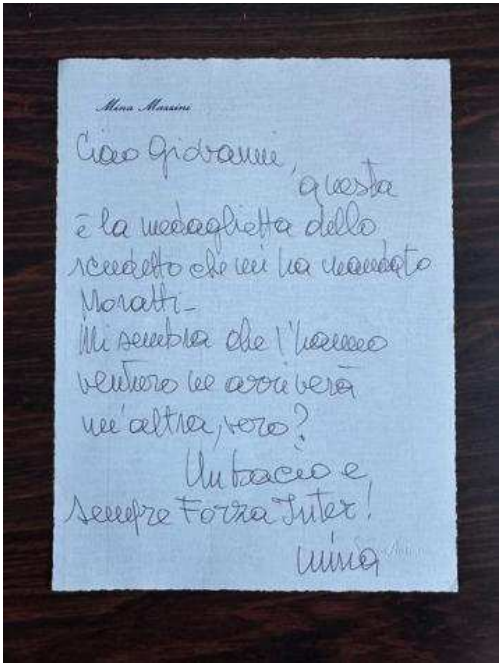 Mina Mazzini
Ciao Giovanni,
questa
è la medaglietta dello
scudetto che mi ha mandato
Moratti-
Mi sembra che l'hanno
venturo ne arriverà
un'altra, vero?
Un bacio e,
sempre Forza Inter!
Mina